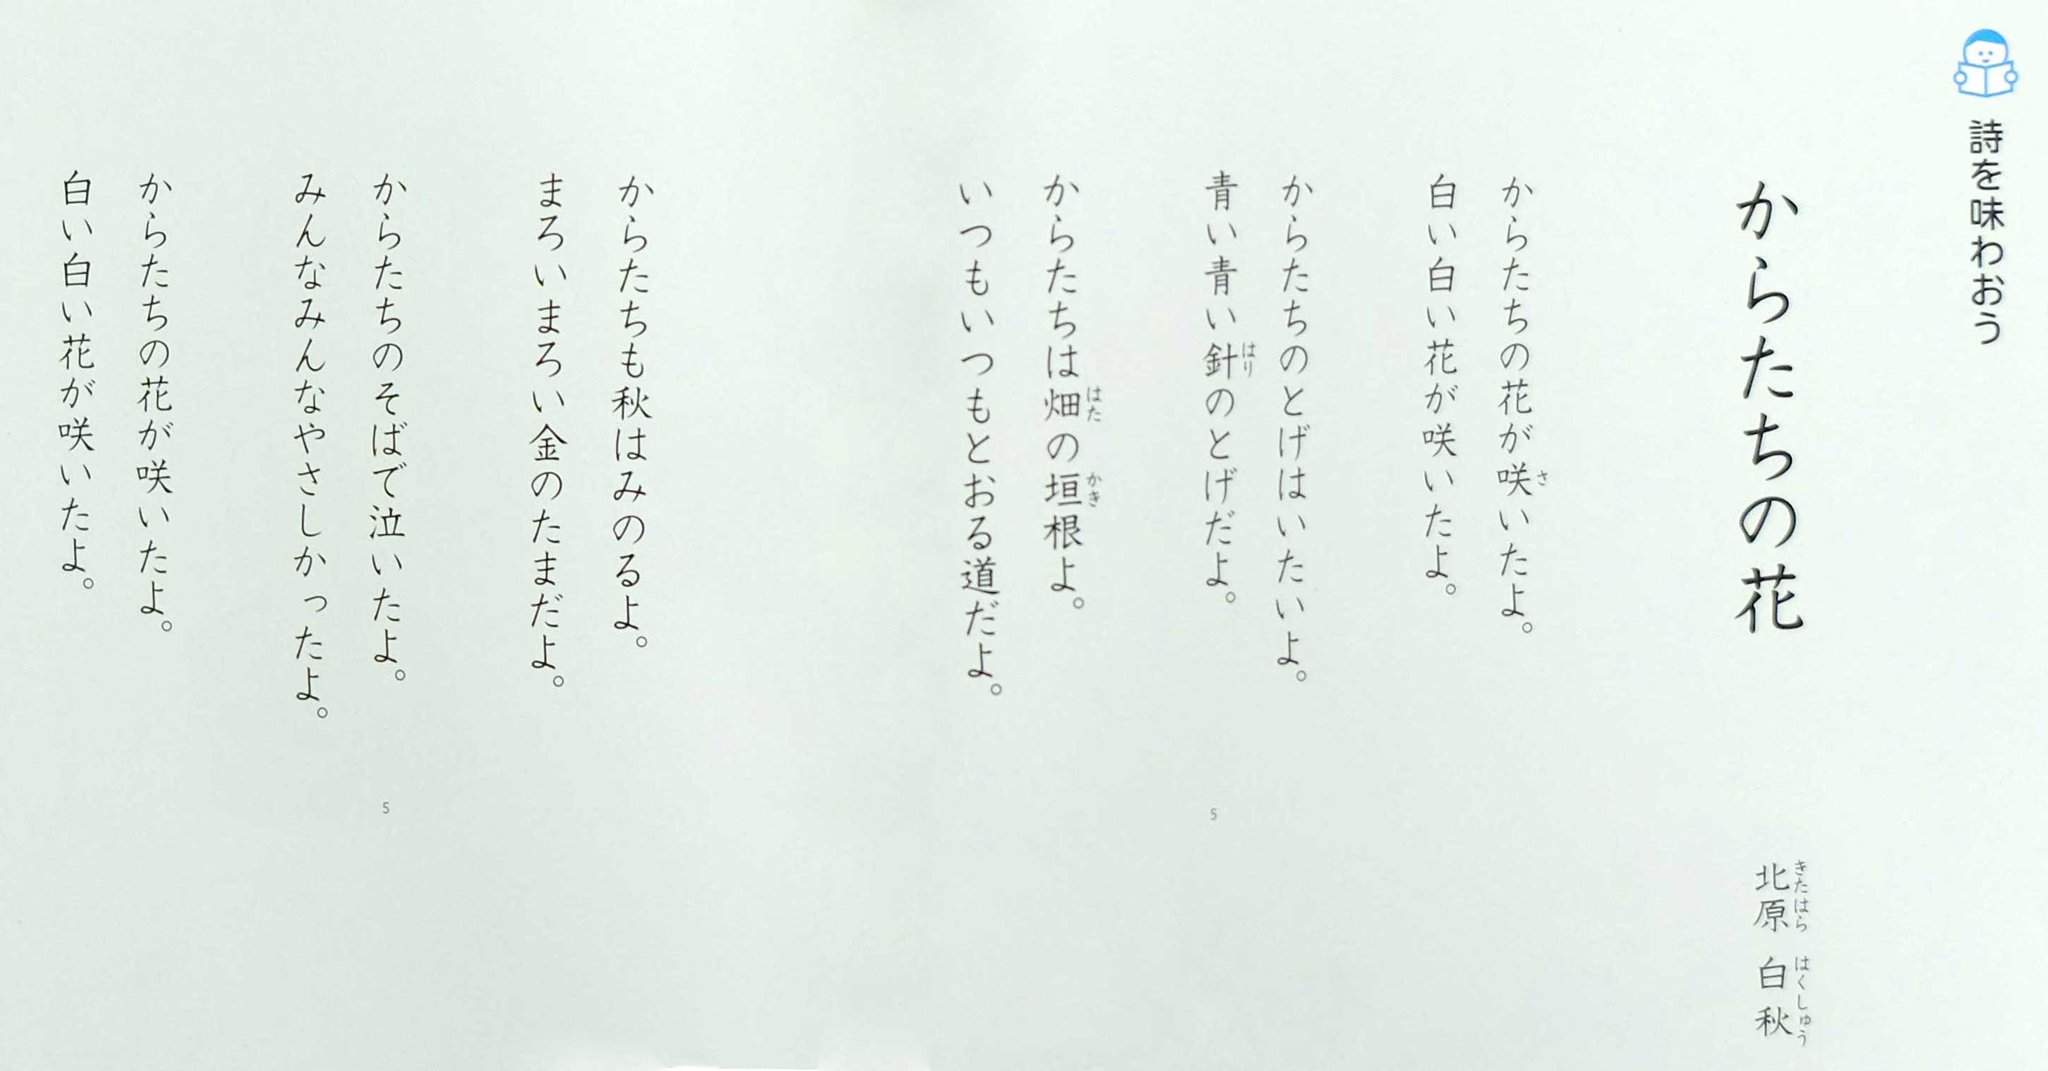 詩を味わおう
からたちの花
北原 白秋
きたはら はくしゅう
からたちの花が咲いたよ。
さ
白い白い花が咲いたよ。
からたちのとげはいたいよ。
青い青い針のとげだよ。
はり
からたちは畑の垣根よ。
はた かき
いつもいつもとおる道だよ。
5
からたちも秋はみのるよ。
まろいまろい金のたまだよ。
からたちのそばで泣いたよ。
みんなみんなやさしかったよ。
からたちの花が咲いたよ。
白い白い花が咲いたよ。
5